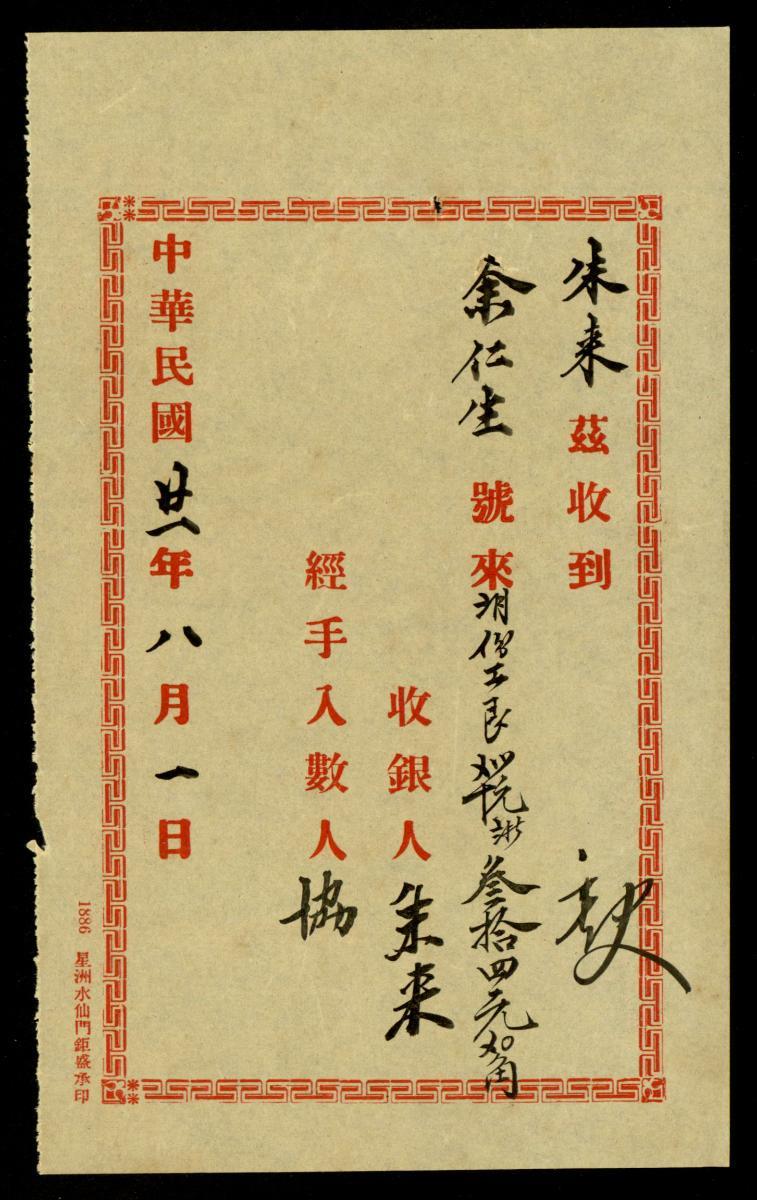 朱来 茲收到
余仁生 號來 叁拾四元
收銀人 朱来
經手入數人 協
中華民國廿一年八月一日
1886 星洲水仙門鉅盛承印